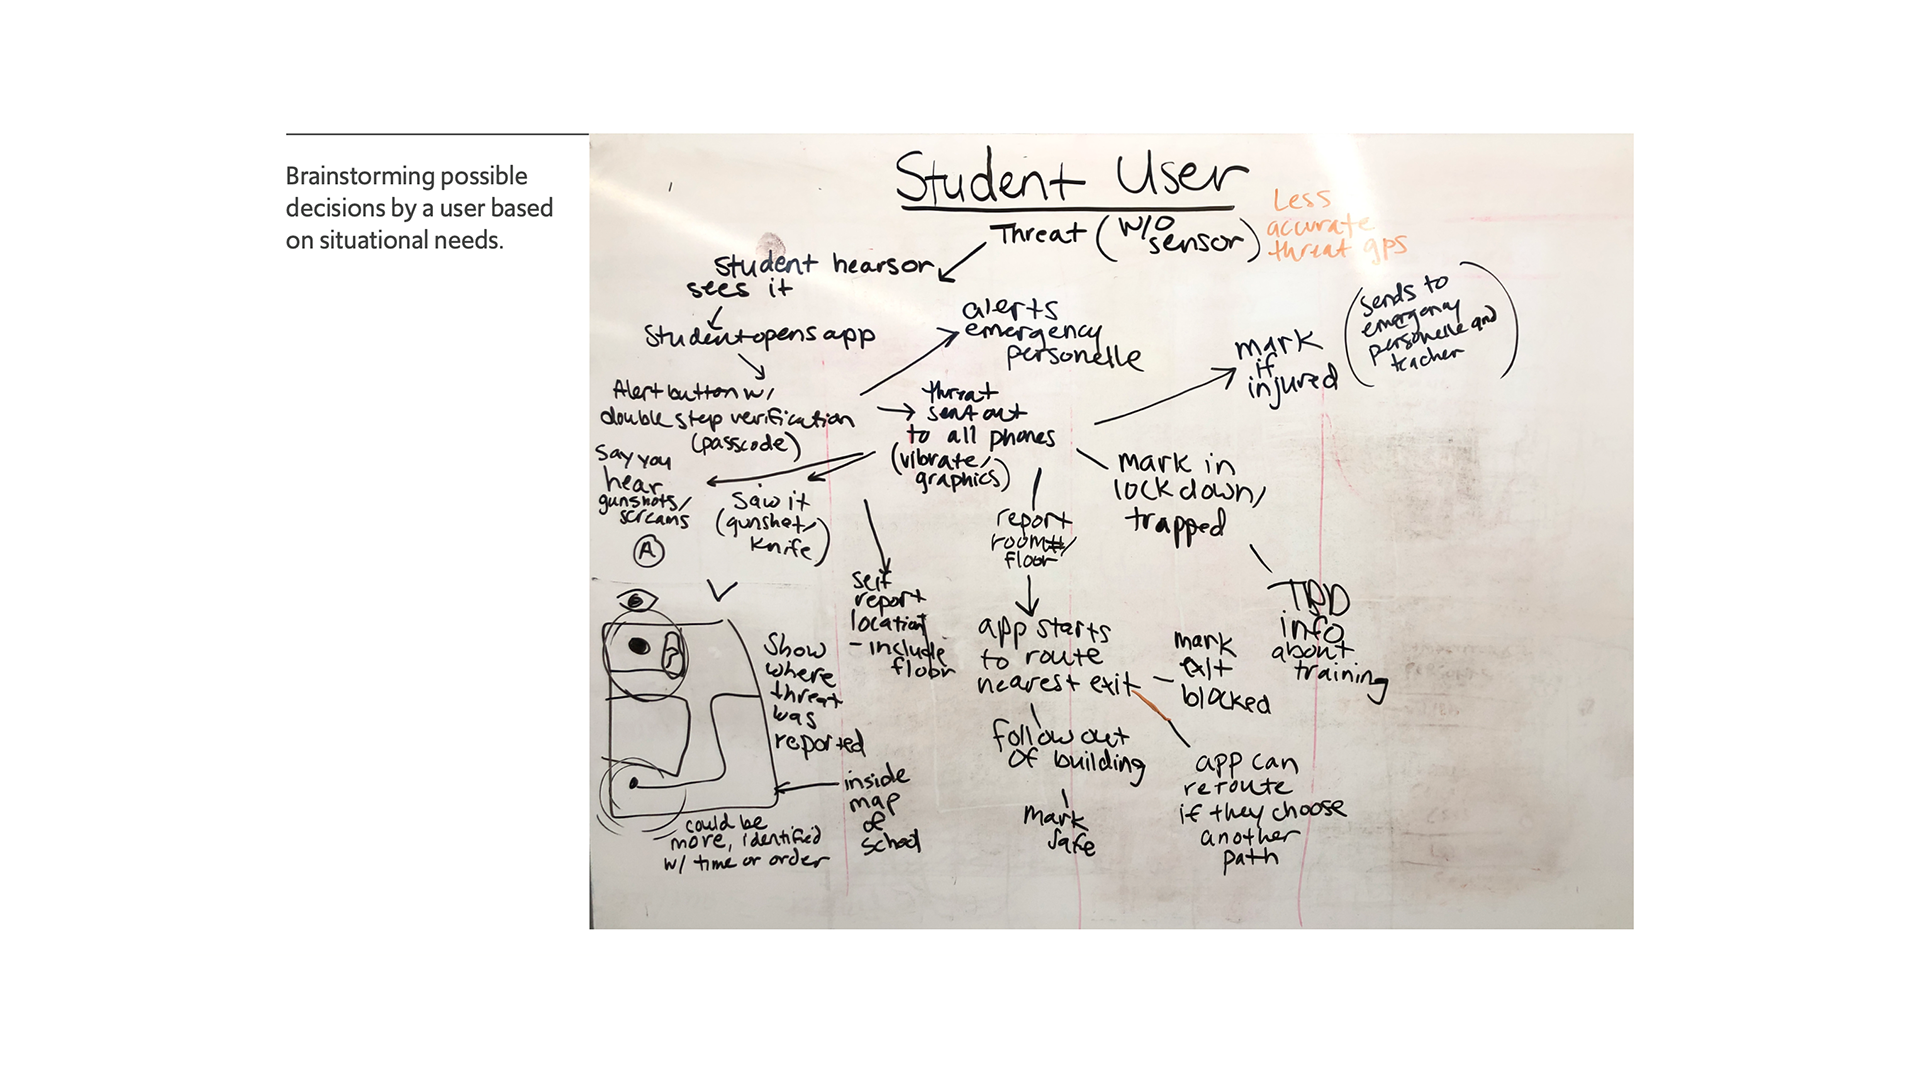 Brainstorming possible
decisions by a user based
on situational needs.
Student User
Threat (w/o
sensor)
Less
accurate
threat gps
student hears or
sees it
Student opens app
Alert button w/
double step verification
(passcode)
alerts
emergency
personelle
threat
sent out
to all phones
(vibrate/
graphics)
mark
if
injured
(sends to
emergency
personelle and
teacher)
Say you
hear
gunshots/
screams
A
Saw it
(gunshot/
knife)
self
report
location
- include
floor
report
room#/
floor
mark in
lockdown/
trapped
info
about
training
app starts
to route
nearest exit
mark
exit
blocked
follow out
of building
mark
safe
app can
reroute
if they choose
another
path
Show
where
threat
was
reported
inside
map
of
school
could be
more, identified
w/ time or order